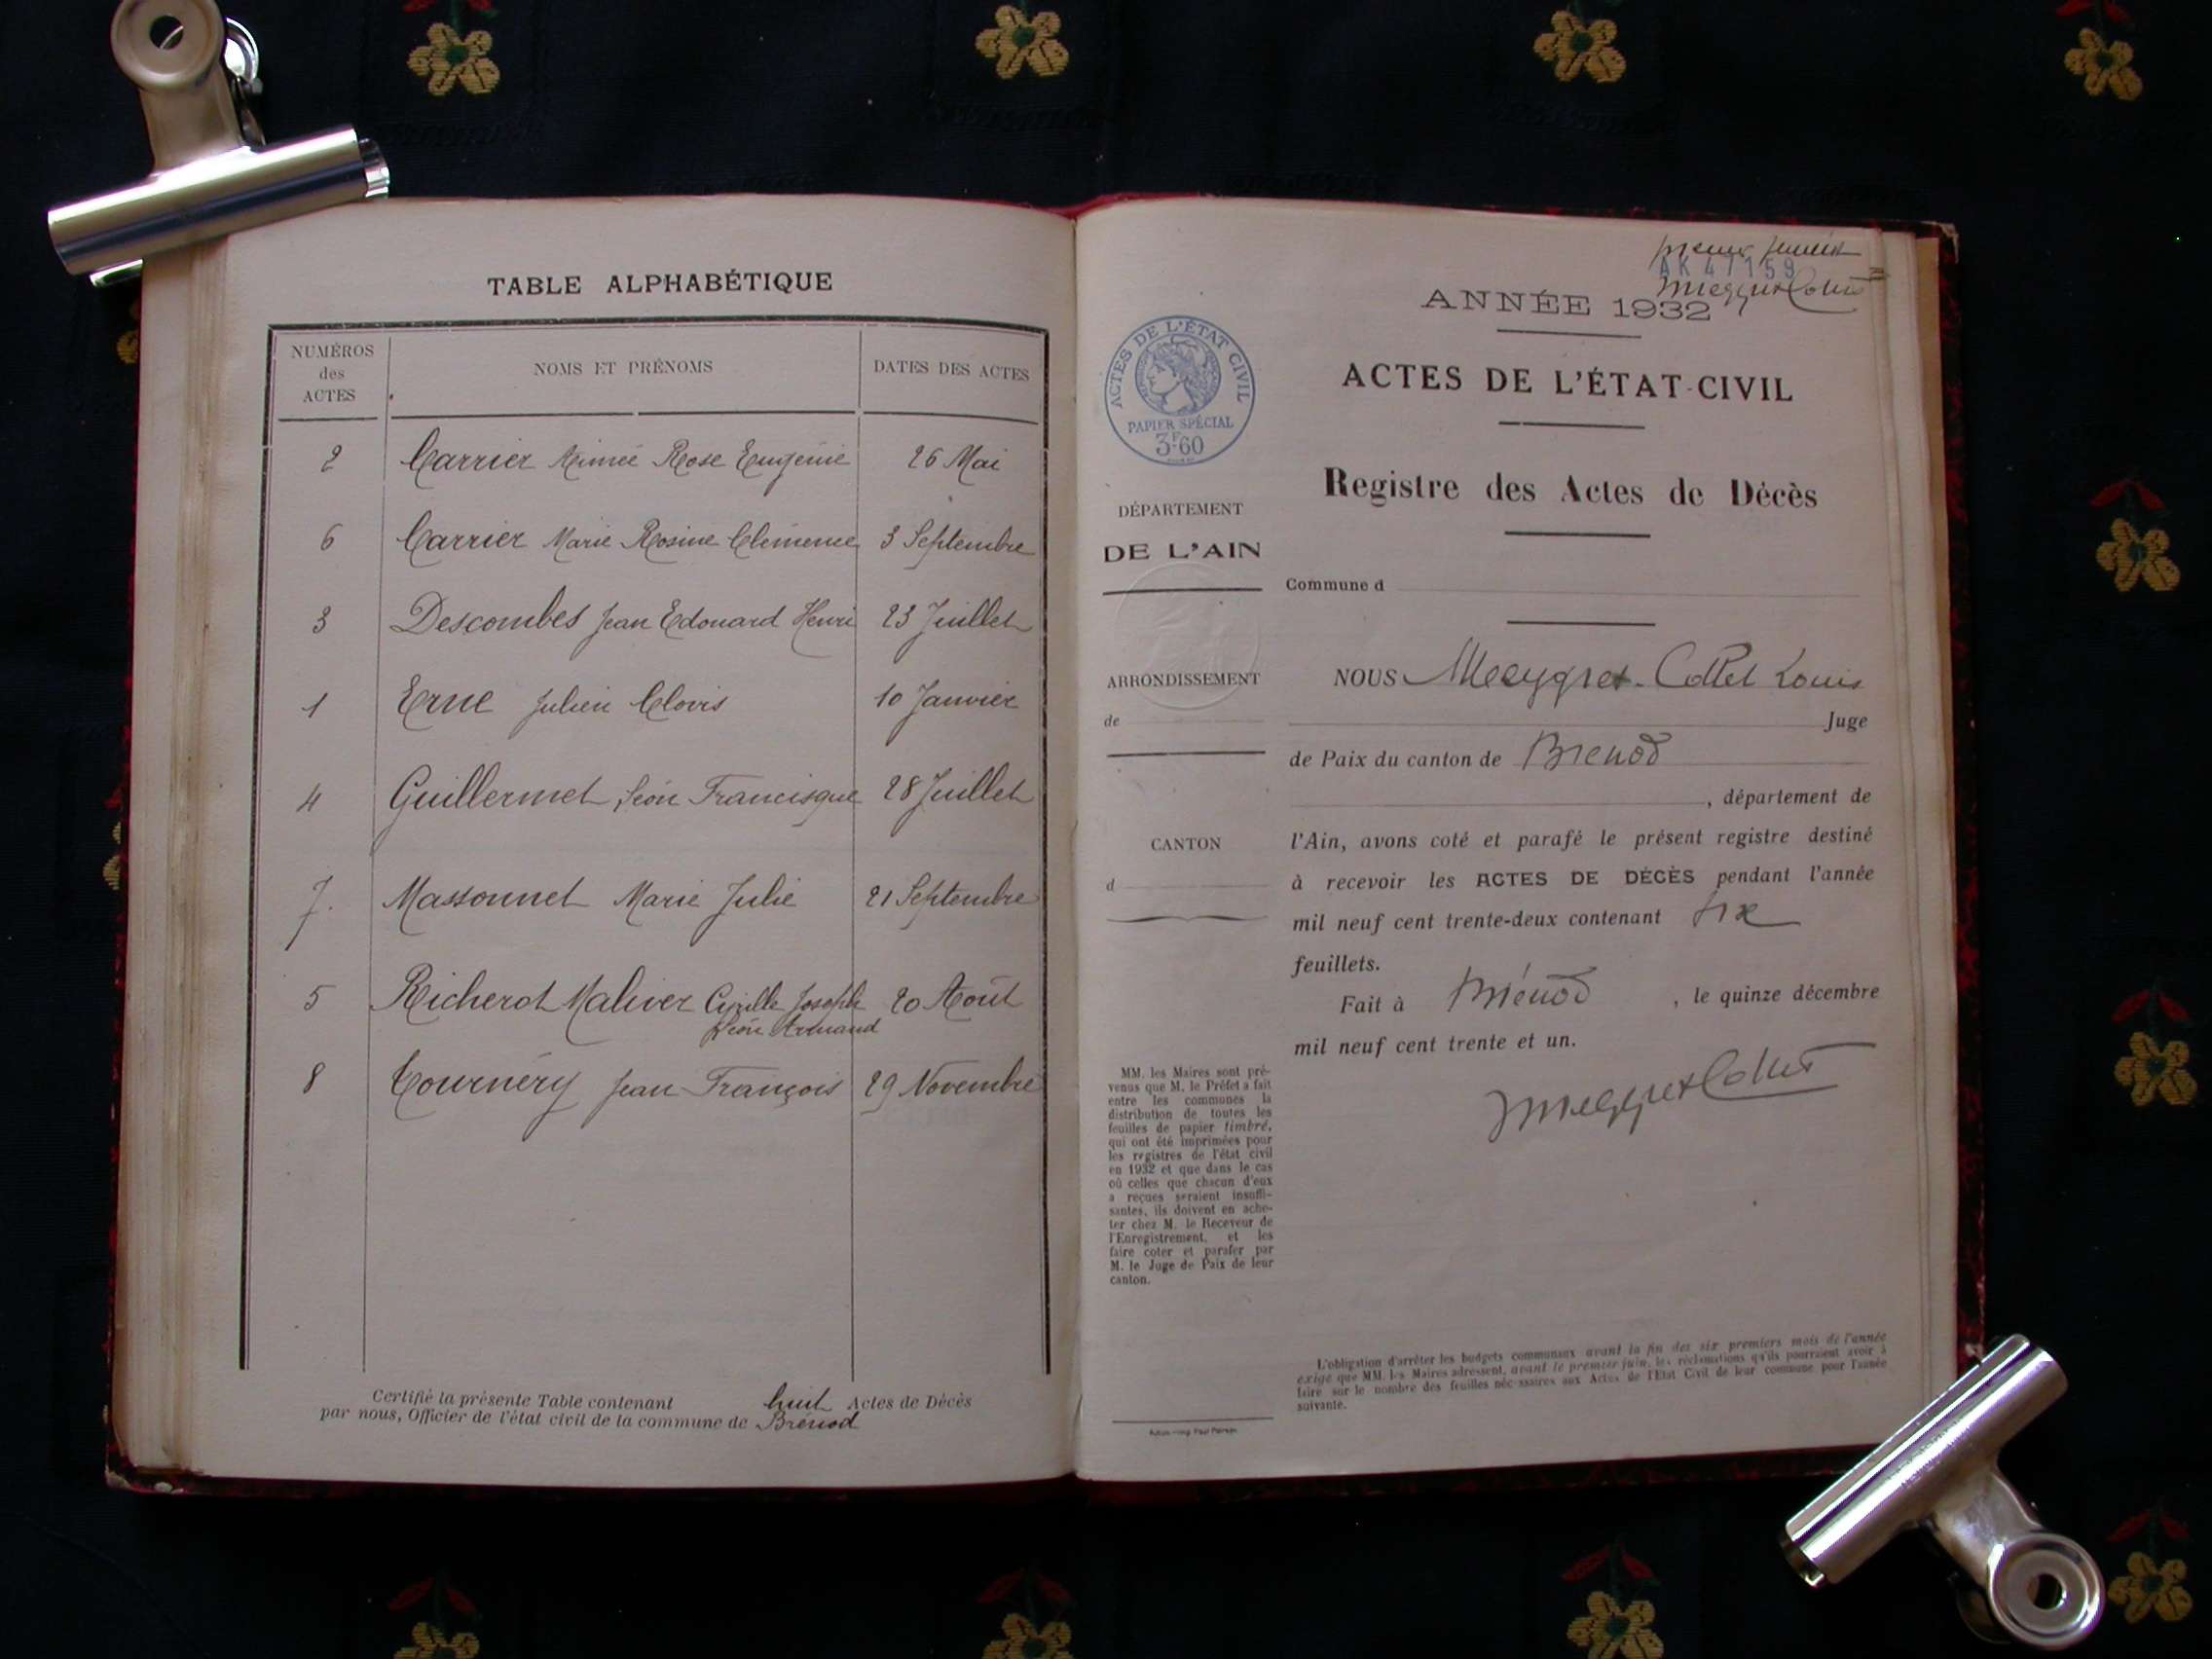 TABLE ALPHABÉTIQUE
NUMÉROS des ACTES NOMS ET PRÉNOMS DATES DES ACTES
2 Carrier Aimée Rose Eugénie 26 Mai
6 Carrier Marie Rosine Clémence 3 Septembre
3 Descombes Jean Edouard Henri 23 Juillet
1 Erne Julien Clovis 10 Janvier
4 Guillermet Léon Francisque 28 Juillet
7. Massonnet Marie Julie 21 Septembre
5 Richerot Maliver Cyrille Joseph 20 Août
Léon Armand
8 Tournéry Jean François 29 Novembre
Certifié la présente Table contenant huit Actes de Décès
par nous, Officier de l'état civil de la commune de Brénod
premier feuillet
AK 47159
ANNÉE 1932
ACTES DE L'ÉTAT CIVIL
PAPIER SPÉCIAL
3F60
ACTES DE L'ÉTAT-CIVIL
Registre des Actes de Décès
DÉPARTEMENT
DE L'AIN
Commune d
ARRONDISSEMENT
de
CANTON
d
NOUS Meygret-Collet Louis
Juge
de Paix du canton de Brenod
, département de
l'Ain, avons coté et parafé le présent registre destiné
à recevoir les ACTES DE DÉCÈS pendant l'année
mil neuf cent trente-deux contenant six
feuillets.
Fait à Brénod , le quinze décembre
mil neuf cent trente et un.
MeygretCollet
MM. les Maires sont pré-
venus que M. le Préfet a fait
entre les communes la
distribution de toutes les
feuilles de papier timbré,
qui ont été imprimées pour
les registres de l'état civil
en 1932 et que dans le cas
où celles que chacun d'eux
a reçues seraient insuffi-
santes, ils doivent en ache-
ter chez M. le Receveur de
l'Enregistrement, et les
faire coter et parafer par
M. le Juge de Paix de leur
canton.
L'obligation d'arrêter les budgets communaux avant la fin des six premiers mois de l'année
exige que MM. les Maires adressent, avant le premier juin, les réclamations qu'ils pourraient avoir à
faire sur le nombre des feuilles nécessaires aux Actes de l'Etat Civil de leur commune pour l'année
suivante.